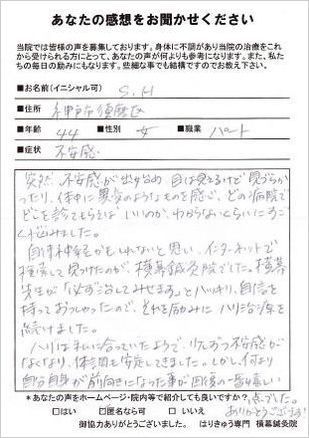 あなたの感想をお聞かせください
当院では皆様の声を募集しております。身体に不調があり当院の治療をこれ
から受けられる方にとって、あなたの声が何よりも参考になります。また、私た
ちの毎日の励みにもなります。些細な事でも結構ですのでお教え下さい。
■お名前(イニシャル可) S.H
■住所 神戸市須磨区
■年齢 44 ■性別 女 ■職業 パート
■症状 不安感
突然、不安感が出始め、目は見えるけど見づらか
ったり、体中に異気のようなものを感じ、どの病院で
どこを診てもらえばいいのか、わからないくらいにすご
く悩みました。
自律神経かもしれないと思い、インターネットで
検索して見つけたのが、横幕鍼灸院でした。横幕
先生が「必ず治してみせます」とハッキリ、自信を
持っておっしゃたので、それを励みにハリ治療を
続けました。
ハリは私に合っていたようで、不安感が
なくなり、体調も安定してきました。しかし、何より
自分自身が前向きになった事が回復の一番嬉しい
点でした。
ありがとうございます
*あなたの声をホームページ・院内等で紹介しても良いですか?
□はい □匿名なら可 □いいえ
御協力ありがとうございました。 はりきゅう専門 横幕鍼灸院